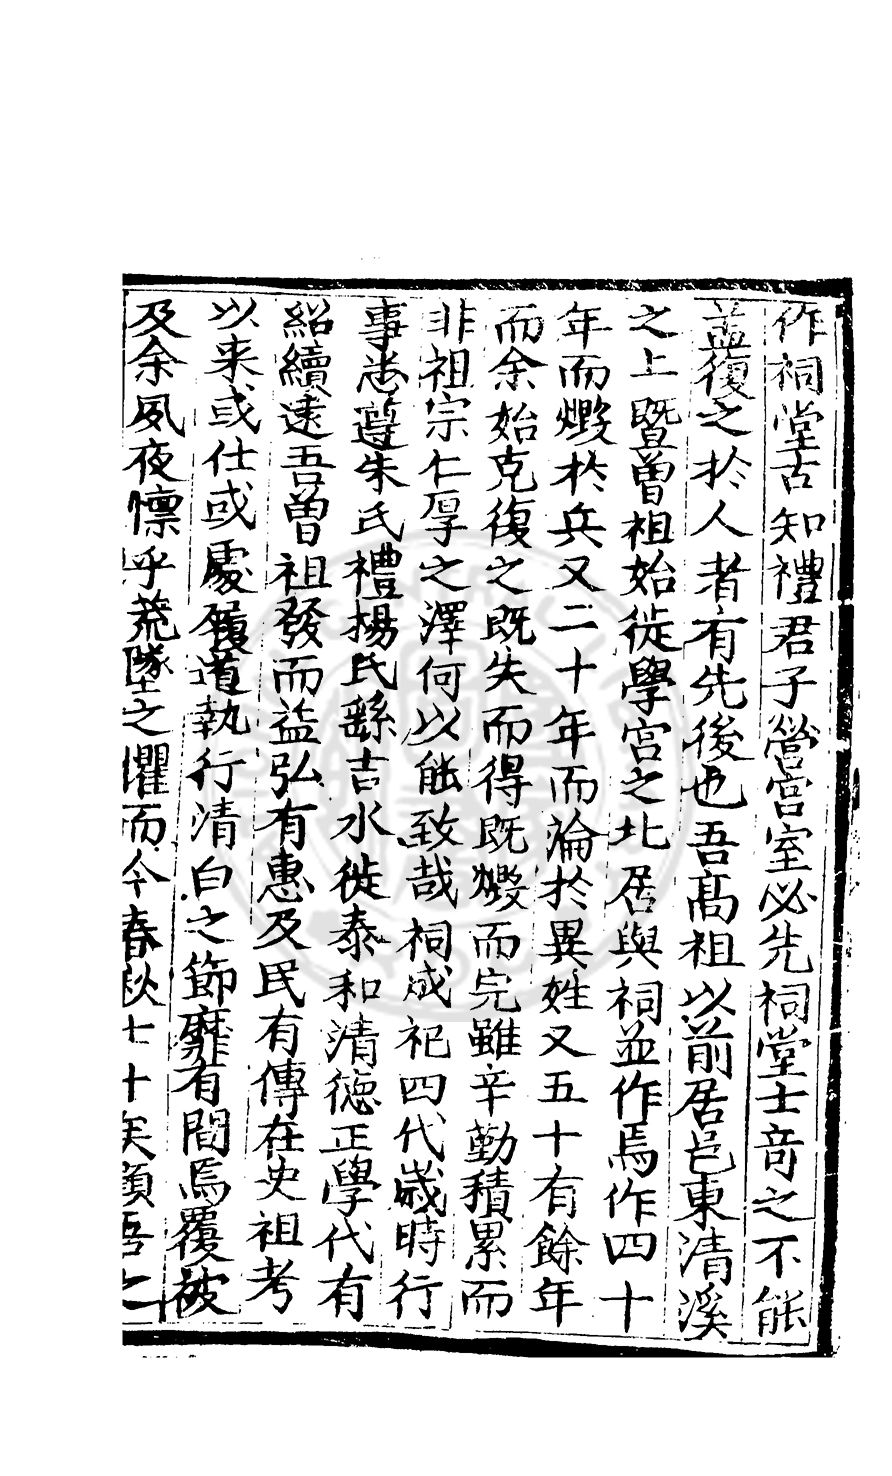 作祠堂古知禮君子營宮室必先祠堂士竒之不能
盖復之於人者有先後也吾髙祖以前居邑東清溪
之上曁曽祖始徙學宮之北居與祠並作焉作四十
年而燬於兵又二十年而淪於異姓又五十有餘年
而余始克復之既失而得既燬而完雖辛勤積累而
非祖宗仁厚之澤何以能致哉祠成祀四代歳時行
事悉遵朱氏禮楊氏繇吉水徙泰和清德正學代有
紹續逮吾曽祖發而益弘有惠及民有傳在史祖考
以来或仕或處履道執行清白之節靡有間焉覆被
及余夙夜懔乎荒墜之懼而今春秋七十矣顧吾之